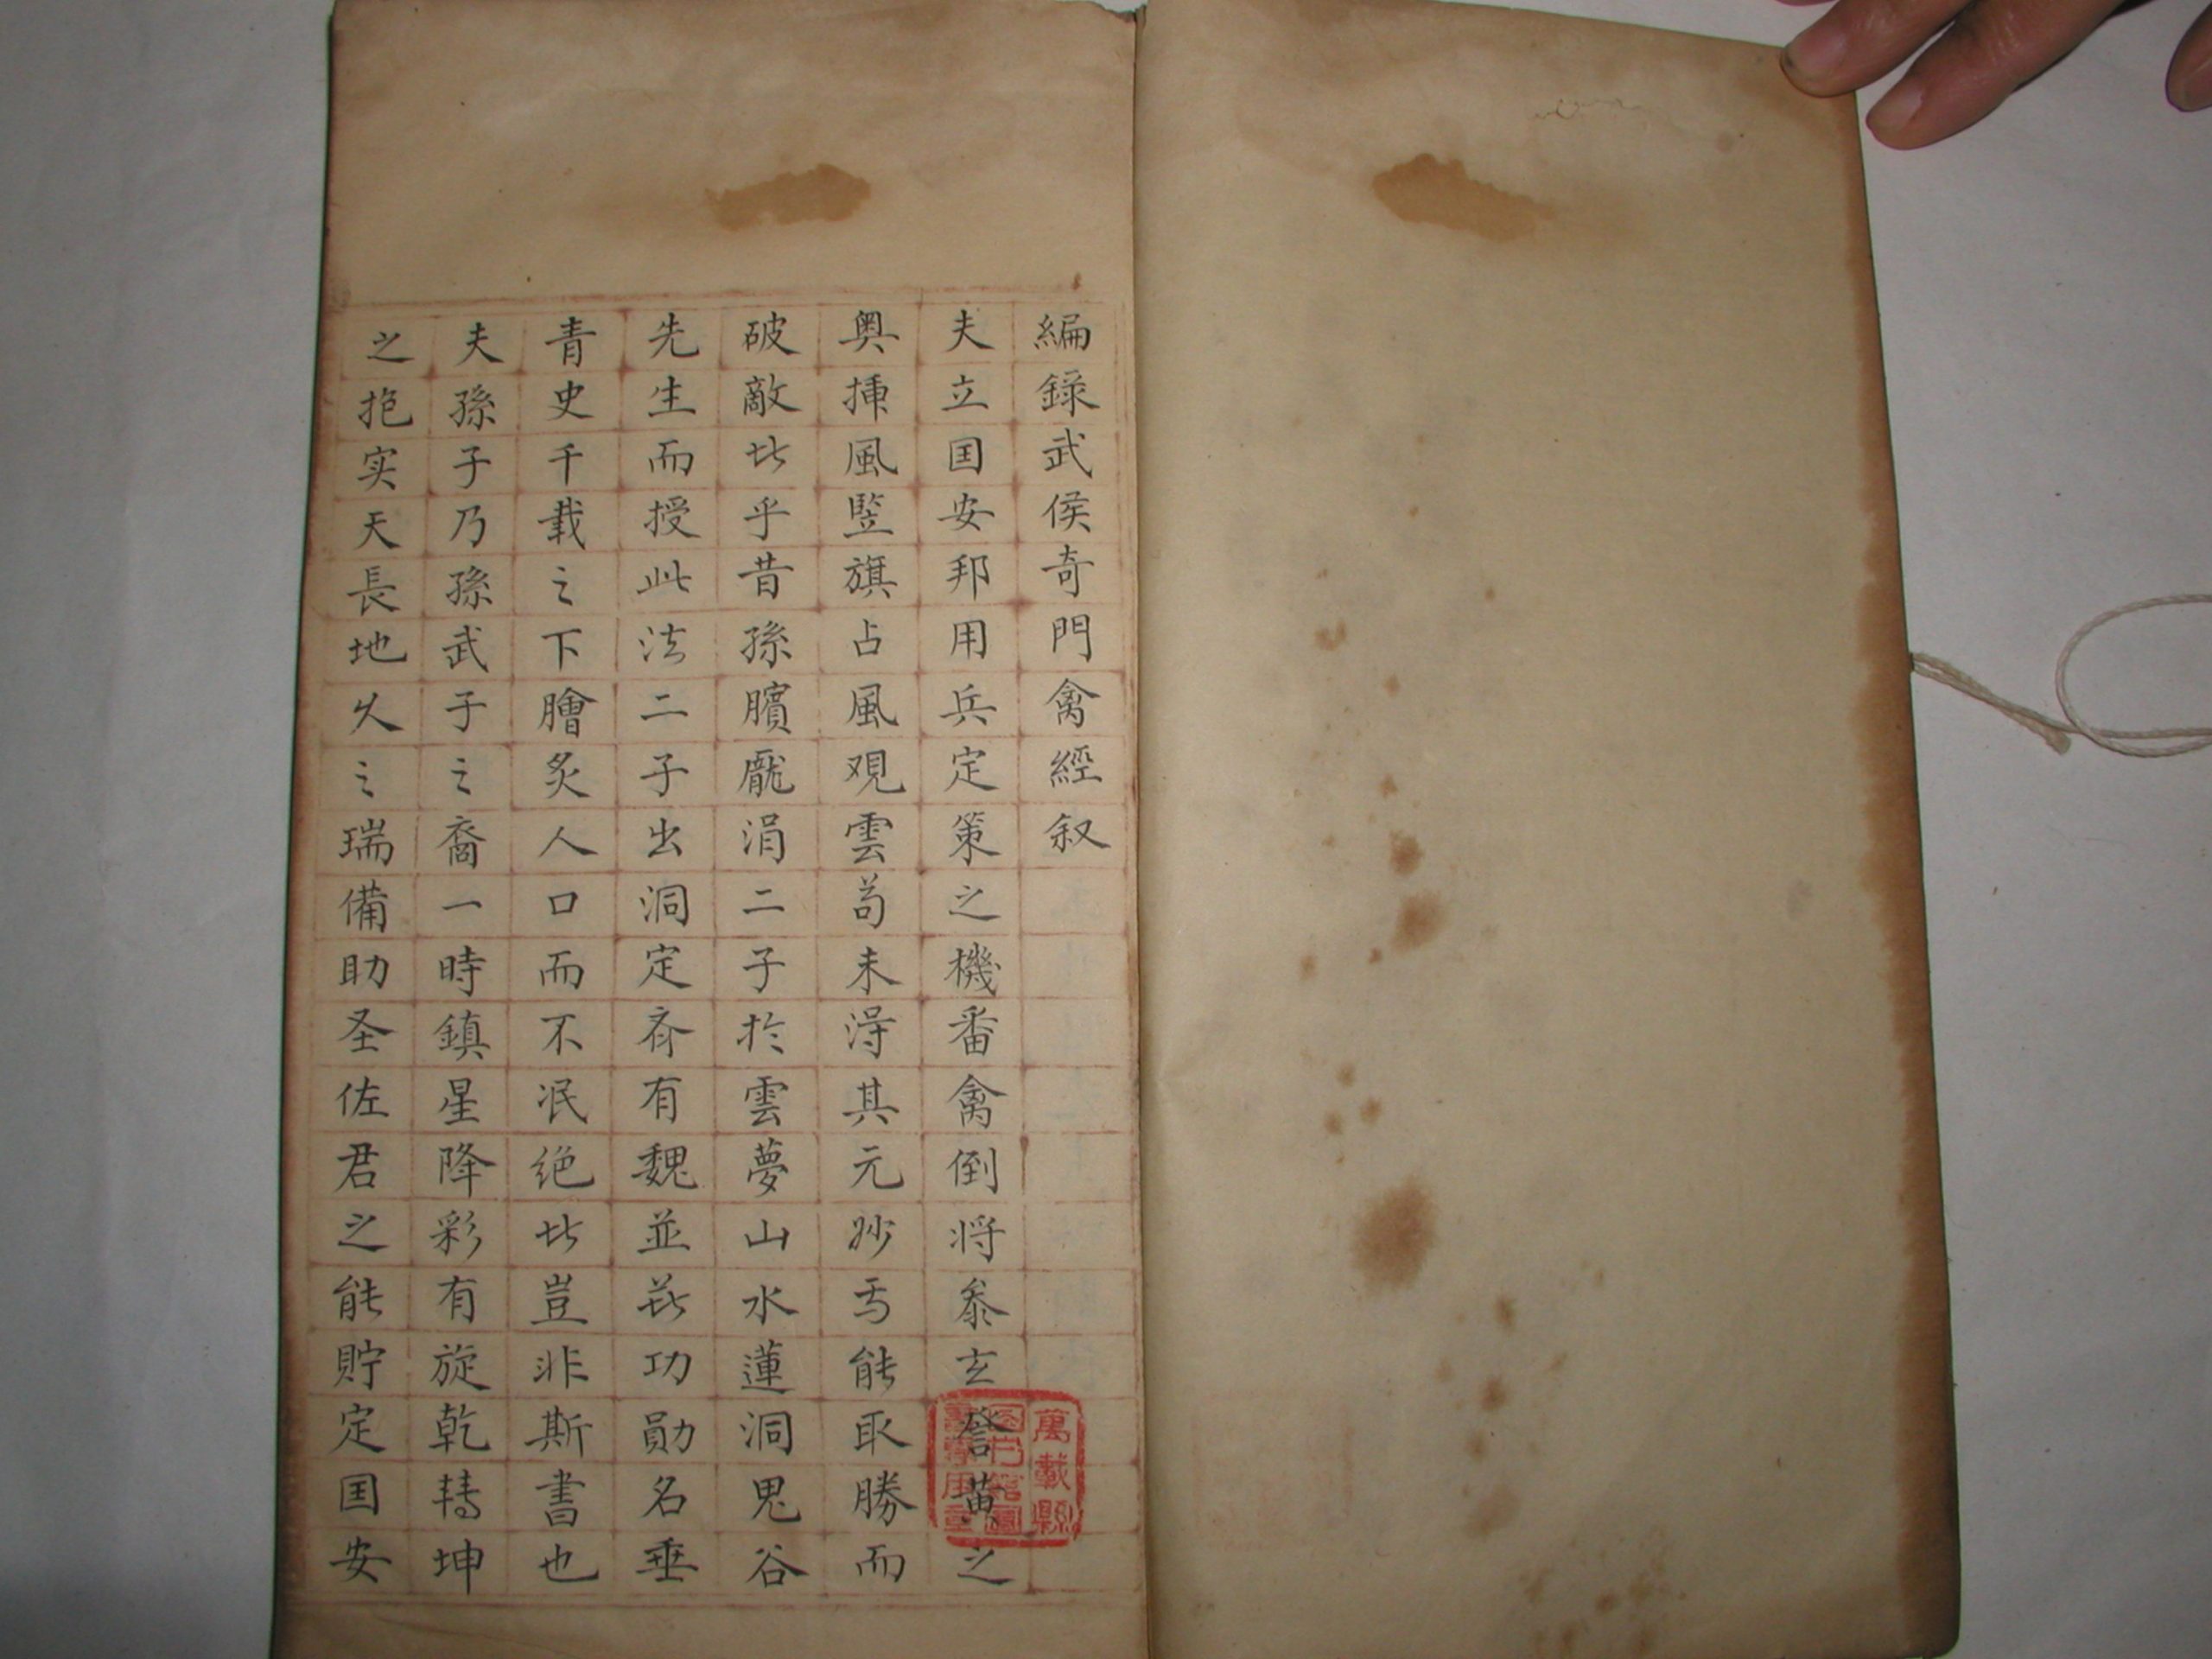 編錄武侯奇門禽經叙
夫立囯安邦用兵定策之機番禽倒将叅玄奓黄之
奥揷風竪旗占風观雲苟未淂其元妙焉能取勝而
破敵此乎昔孫臏龎涓二子於雲夢山水蓮洞鬼谷
先生而授此法二子出洞定斉有魏並兹功勛名垂
青史千載之下膾炙人口而不泯绝此豈非斯書也
夫孫子乃孫武子之裔一時鎮星降彩有旋乾轉坤
之抱实天長地久之瑞備助圣佐君之能貯定囯安
萬載縣